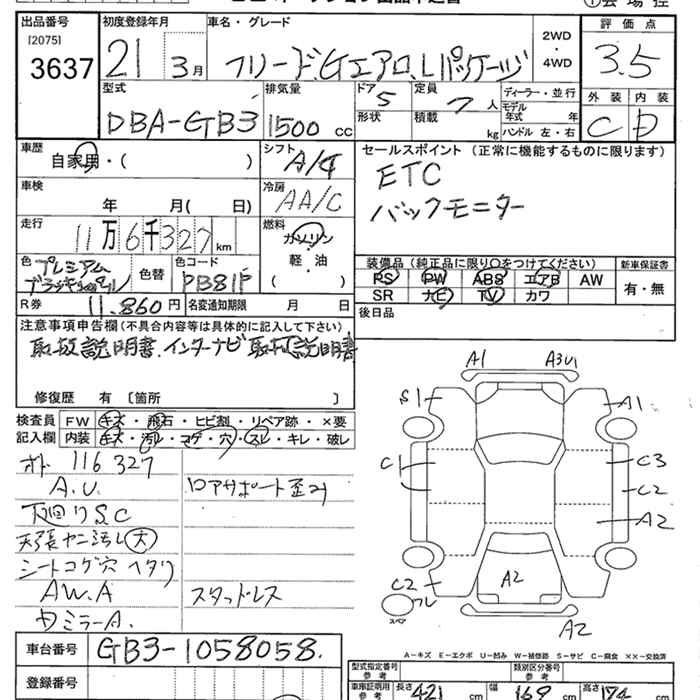 出品番号
[2075]
3637
初度登録年月
21 3月
車名・グレード
フリード.Gエアロ.Lパッケージ
2WD
・
4WD
評価点
3.5
外装 内装
C D
型式
DBA-GB3
排気量
1500 cc
ドア
5
形状
定員
7 人
積載
kg
ディーラー・並行
モデル年式 年
ハンドル 左・右
車歴
自家用・( )
シフト
A/T
車検
年 月( 日)
冷房
AA/C
走行
11万6千327km
燃料
ガソリン
軽・油
( )
色 プレミアム
色替
色コード
PB81P
R券 11.860円
名変通知期限 月 日
セールスポイント (正常に機能するものに限ります)
ETC
バックモニター
装備品 (純正品に限り○をつけてください)
PS PW ABS エアB AW
SR ナビ TV カワ
新車保証書
有・無
後日品
注意事項申告欄(不具合内容等は具体的に記入して下さい)
取扱説明書.インターナビ取扱説明書
修復歴 有 〔箇所 〕
検査員
記入欄
FW キズ・飛石・ヒビ割・リペア跡・×要
内装 キズ・汚レ・コゲ・穴・スレ・キレ・破レ
オド 116327
A.U.
ロアサポート歪み
下廻りS.C
天張ヤニ汚レ大
シートコゲ穴 ヘタリ
AW.A
スタッドレス
ミラーA.
A1 A3U1
S1 A1
C1 C3
C2
A2
C2
A2
A2
スペア
A-キズ E-エクボ U-凹み W-補修跡 S-サビ C-腐食 ××-交換済
車台番号
GB3-1058058.
登録番号
型式指定番号
参考
類別区分番号
参考
車庫証明用
参考
長さ 421 cm
幅 169 cm
高さ 174 cm